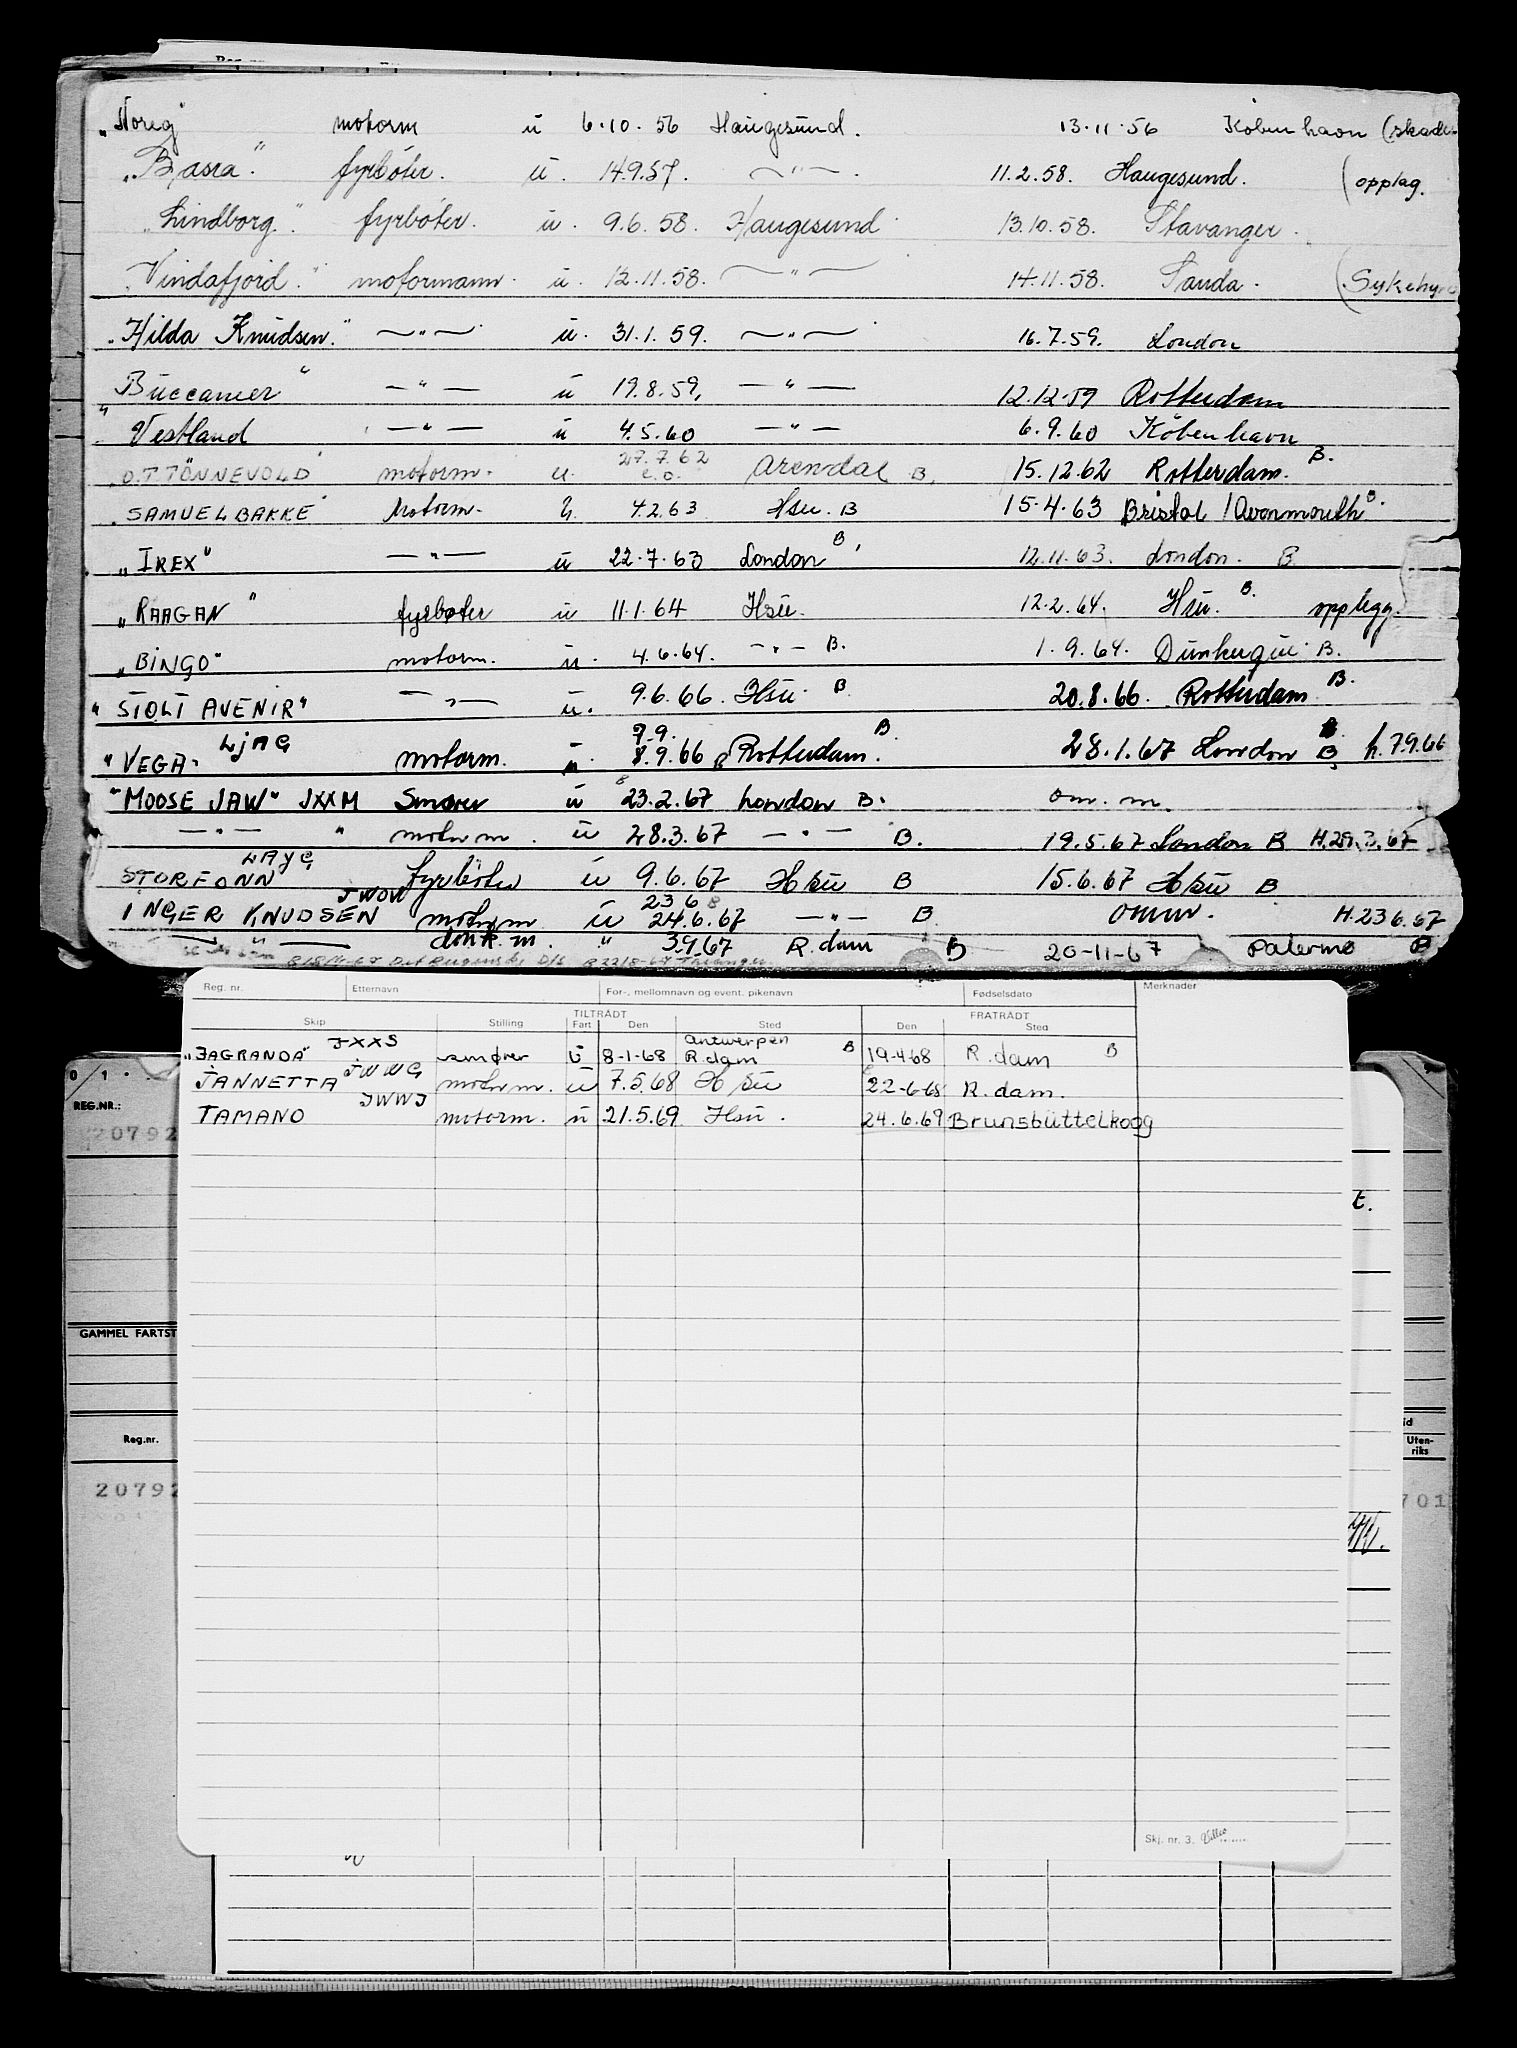 „Noreg" motorm ü 6.10.56 Haugesund. 13.11.56 København (skade
„Basra". fyrbøter. ü. 14.9.57. —"—. 11.2.58. Haugesund. (opplag.
„Lindborg". fyrbøter. ü. 9.6.58. Haugesund 13.10.58. Stavanger.
„Vindafjord". motormann. ü. 12.11.58. —"— 14.11.58. Sauda. (Sykehus
„Hilda Knudsen." —"— ü. 31.1.59. —"— 16.7.59. London
Buccaneer" —"— ü 19.8.59, —"— 12.12.59 Rotterdam
"Vestland —"— ü 4.5.60 —"— 6.9.60 København
27.7.62
O.T. TÖNNEVOLD motorm. ü. e.o. Arendal B. 15.12.62 Rotterdam. B.
SAMUEL BAKKE Motorm. ü. 4.2.63 Hsu. B 15.4.63 Bristol /Avonmouth B.
„IREX" —"— ü 22.7.63 London B. 12.11.63. London. B
„RAAGAN" fyrbøter ü 11.1.64 Hsu. 12.2.64. Hsu. B. opplegg.
„BINGO" motorm. ü. 4.6.64. —"— B. 1.9.64. Dunkerque. B.
"STOLT AVENIR" —"— ü. 9.6.66 Hsu. B 20.8.66. Rotterdam B.
LjAG 7.9.
"VEGA" motorm. ü. 8.9.66 Rotterdam. B. 28.1.67 London B h.7.9.66
"MOOSE JAW" JXXM Smører ü 23.2.67 London B. om. m.
—"— " motorm. ü 28.3.67 —"— B. 19.5.67 London B H.29.3.67
LAYG
STORFONN fyrbøter ü 9.6.67 Hsu B 15.6.67 Hsu B
JWOW 23 6 B
INGER KNUDSEN motorm ü 24.6.67 —"— B omm. H.23 6.67
—"— donk. m. " 3.9.67 R.dam B 20-11-67 Palermo B
Reg. nr. Etternavn For-, mellomnavn og event. pikenavn Fødselsdato Merknader
TILTRÅDT FRATRÅDT
Skip Stilling Fart Den Sted Den Sted
JXXS Antwerpen
„JAGRANDA" smører ü 8-1-68 R.dam B 19-4-68 R.dam B
JWWG
JANNETTA motorm. ü 7.5.68 Hsu 22-6-68 R.dam.
JWWJ
TAMANO motorm. ü 21.5.69 Hsu. 24.6.69 Brunsbüttelkoog
0 1
REG.NR.:
20792
t.
GAMMEL FARTST
Reg.nr.
id
Uten-
riks
20792
701
Skj. nr. 3.